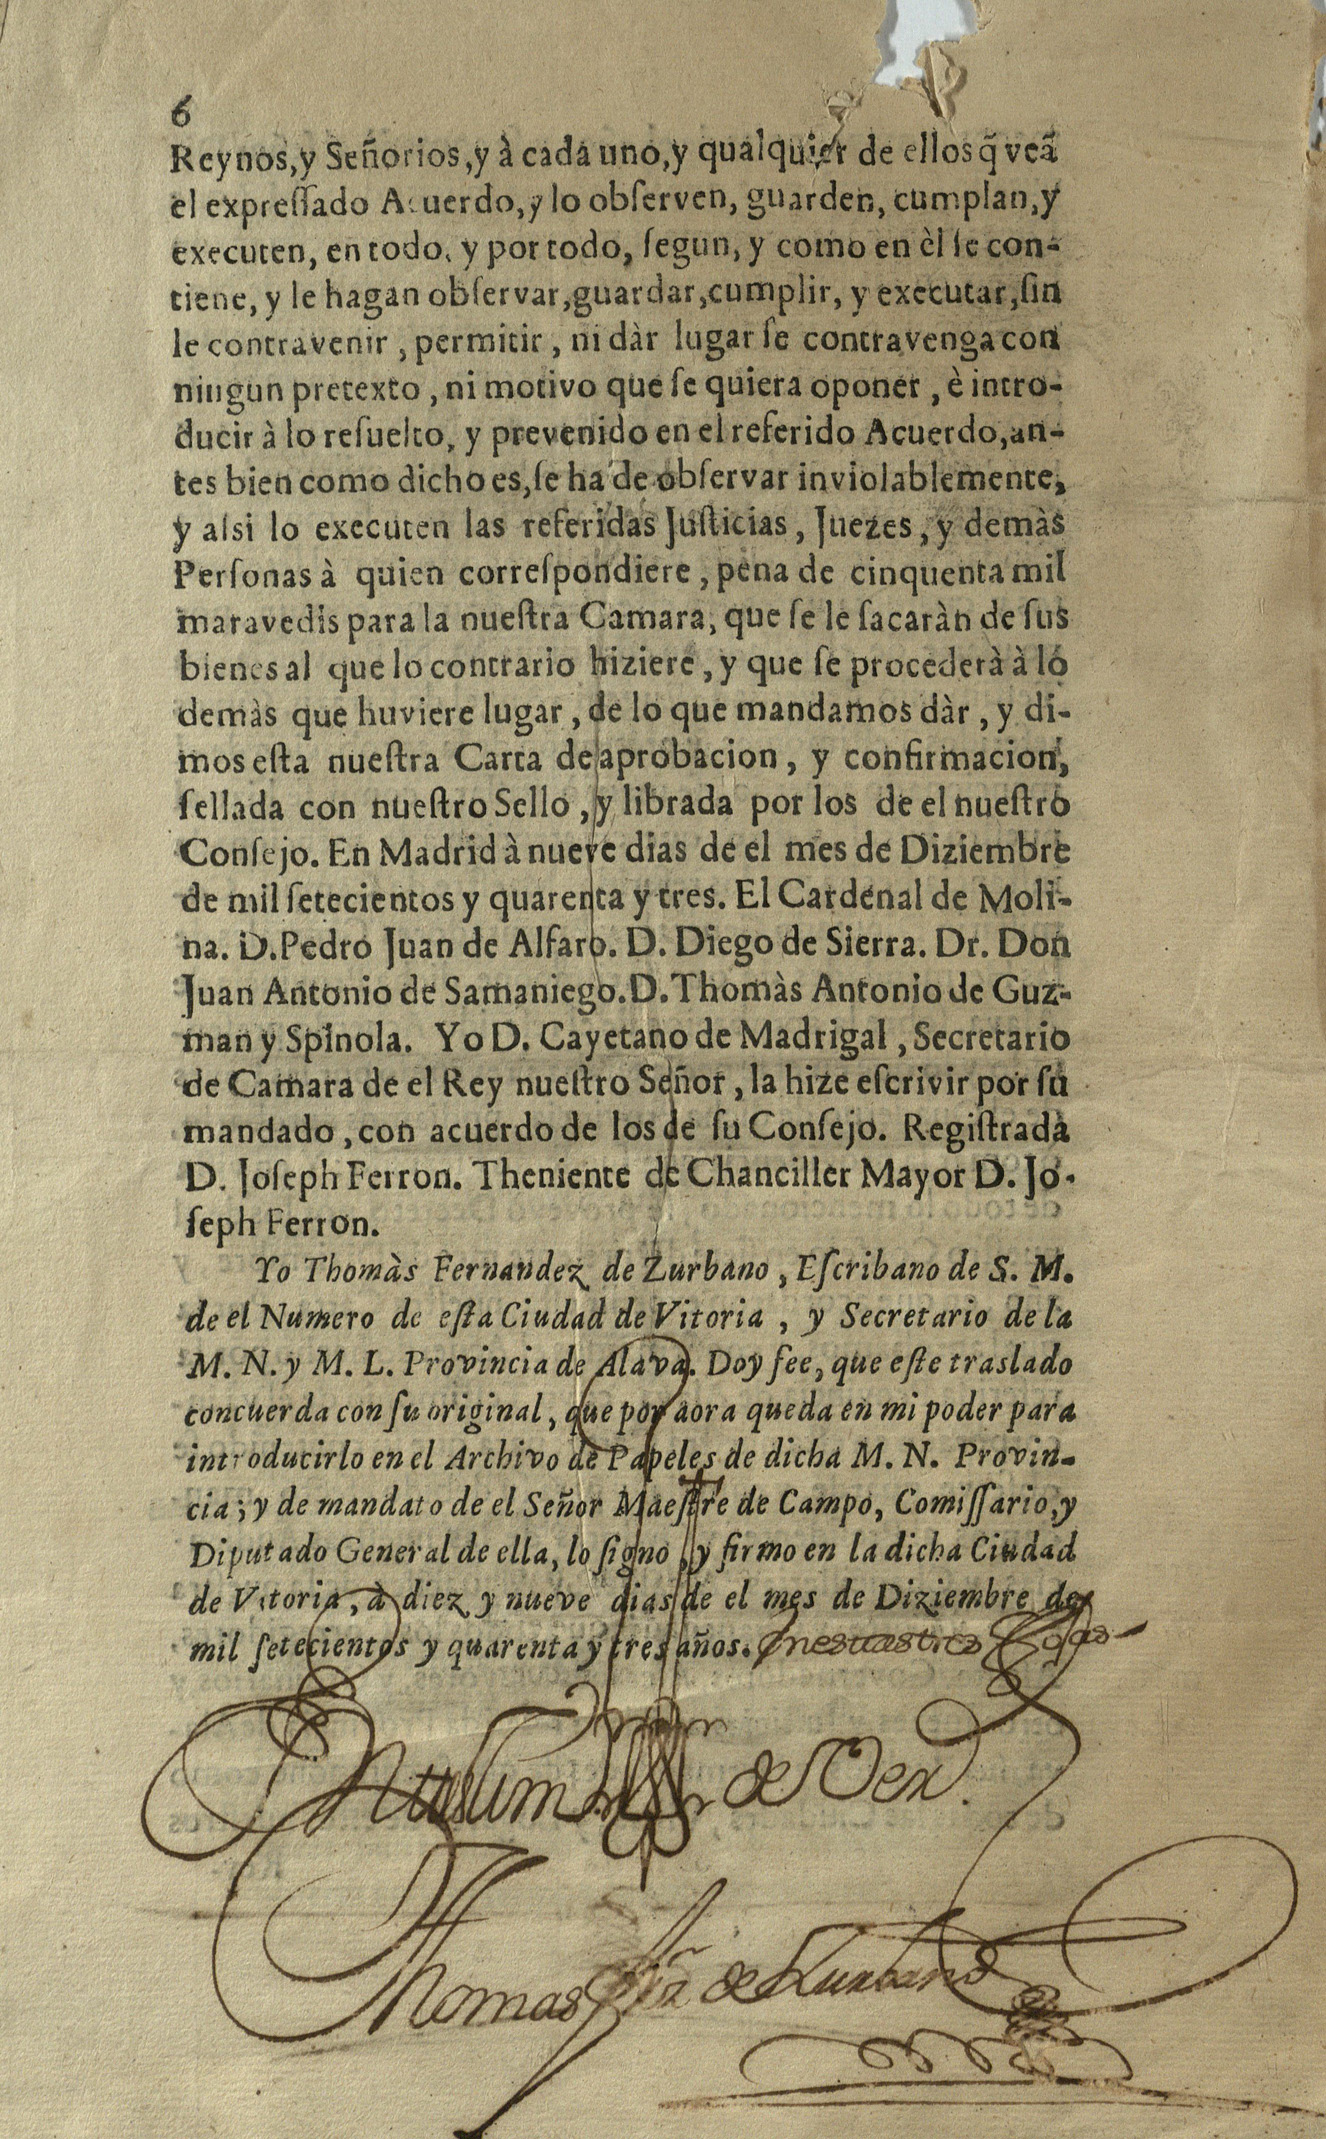 6
Reynos,y Señorios,y à cada uno,y qualquier de ellos q̃ veã
el expreſſado Acuerdo,y lo obſerven, guarden, cumplan,y
executen, en todo, y por todo, ſegun, y como en èl ſe con-
tiene, y le hagan obſervar,guardar,cumplir, y executar,ſin
le contravenir , permitir , ni dàr lugar ſe contravenga con
ningun pretexto , ni motivo que ſe quiera oponer , è intro-
ducir à lo reſuelto, y prevenido en el referido Acuerdo,an-
tes bien como dicho es,ſe ha de obſervar inviolablemente,
y aſsi lo executen las referidas Juſticias , Juezes , y demàs
Perſonas à quien correſpondiere , pena de cinquenta mil
maravedis para la nueſtra Camara, que ſe le ſacaràn de ſus
bienes al que lo contrario hiziere , y que ſe procederà à lo
demàs que huviere lugar , de lo que mandamos dàr , y di-
mos eſta nueſtra Carta de aprobacion , y confirmacion,
ſellada con nueſtro Sello , y librada por los de el nueſtro
Conſejo. En Madrid à nueve dias de el mes de Diziembre
de mil ſetecientos y quarenta y tres. El Cardenal de Moli-
na. D.Pedro Juan de Alfaro. D. Diego de Sierra. Dr. Don
Juan Antonio de Samaniego.D.Thomàs Antonio de Guz-
man y Spinola. Yo D. Cayetano de Madrigal , Secretario
de Camara de el Rey nueſtro Señor , la hize eſcrivir por ſu
mandado , con acuerdo de los de ſu Conſejo. Regiſtrada
D. Joſeph Ferron. Theniente de Chanciller Mayor D. Jo-
ſeph Ferron.
Yo Thomàs Fernandez de Zurbano , Eſcribano de S. M.
de el Numero de eſta Ciudad de Vitoria , y Secretario de la
M. N. y M. L. Provincia de Alava. Doy fee, que eſte traslado
concuerda con ſu original , que por aora queda en mi poder para
introducirlo en el Archivo de Papeles de dicha M. N. Provin-
cia ; y de mandato de el Señor Maeſtre de Campo, Comiſſario,y
Diputado General de ella, lo ſigno , y firmo en la dicha Ciudad
de Vitoria , à diez y nueve dias de el mes de Diziembre de
mil ſetecientos y quarenta y tres años. en estas tres fojas
En testim.º de Verd.
Thomas Frz de Zurbano